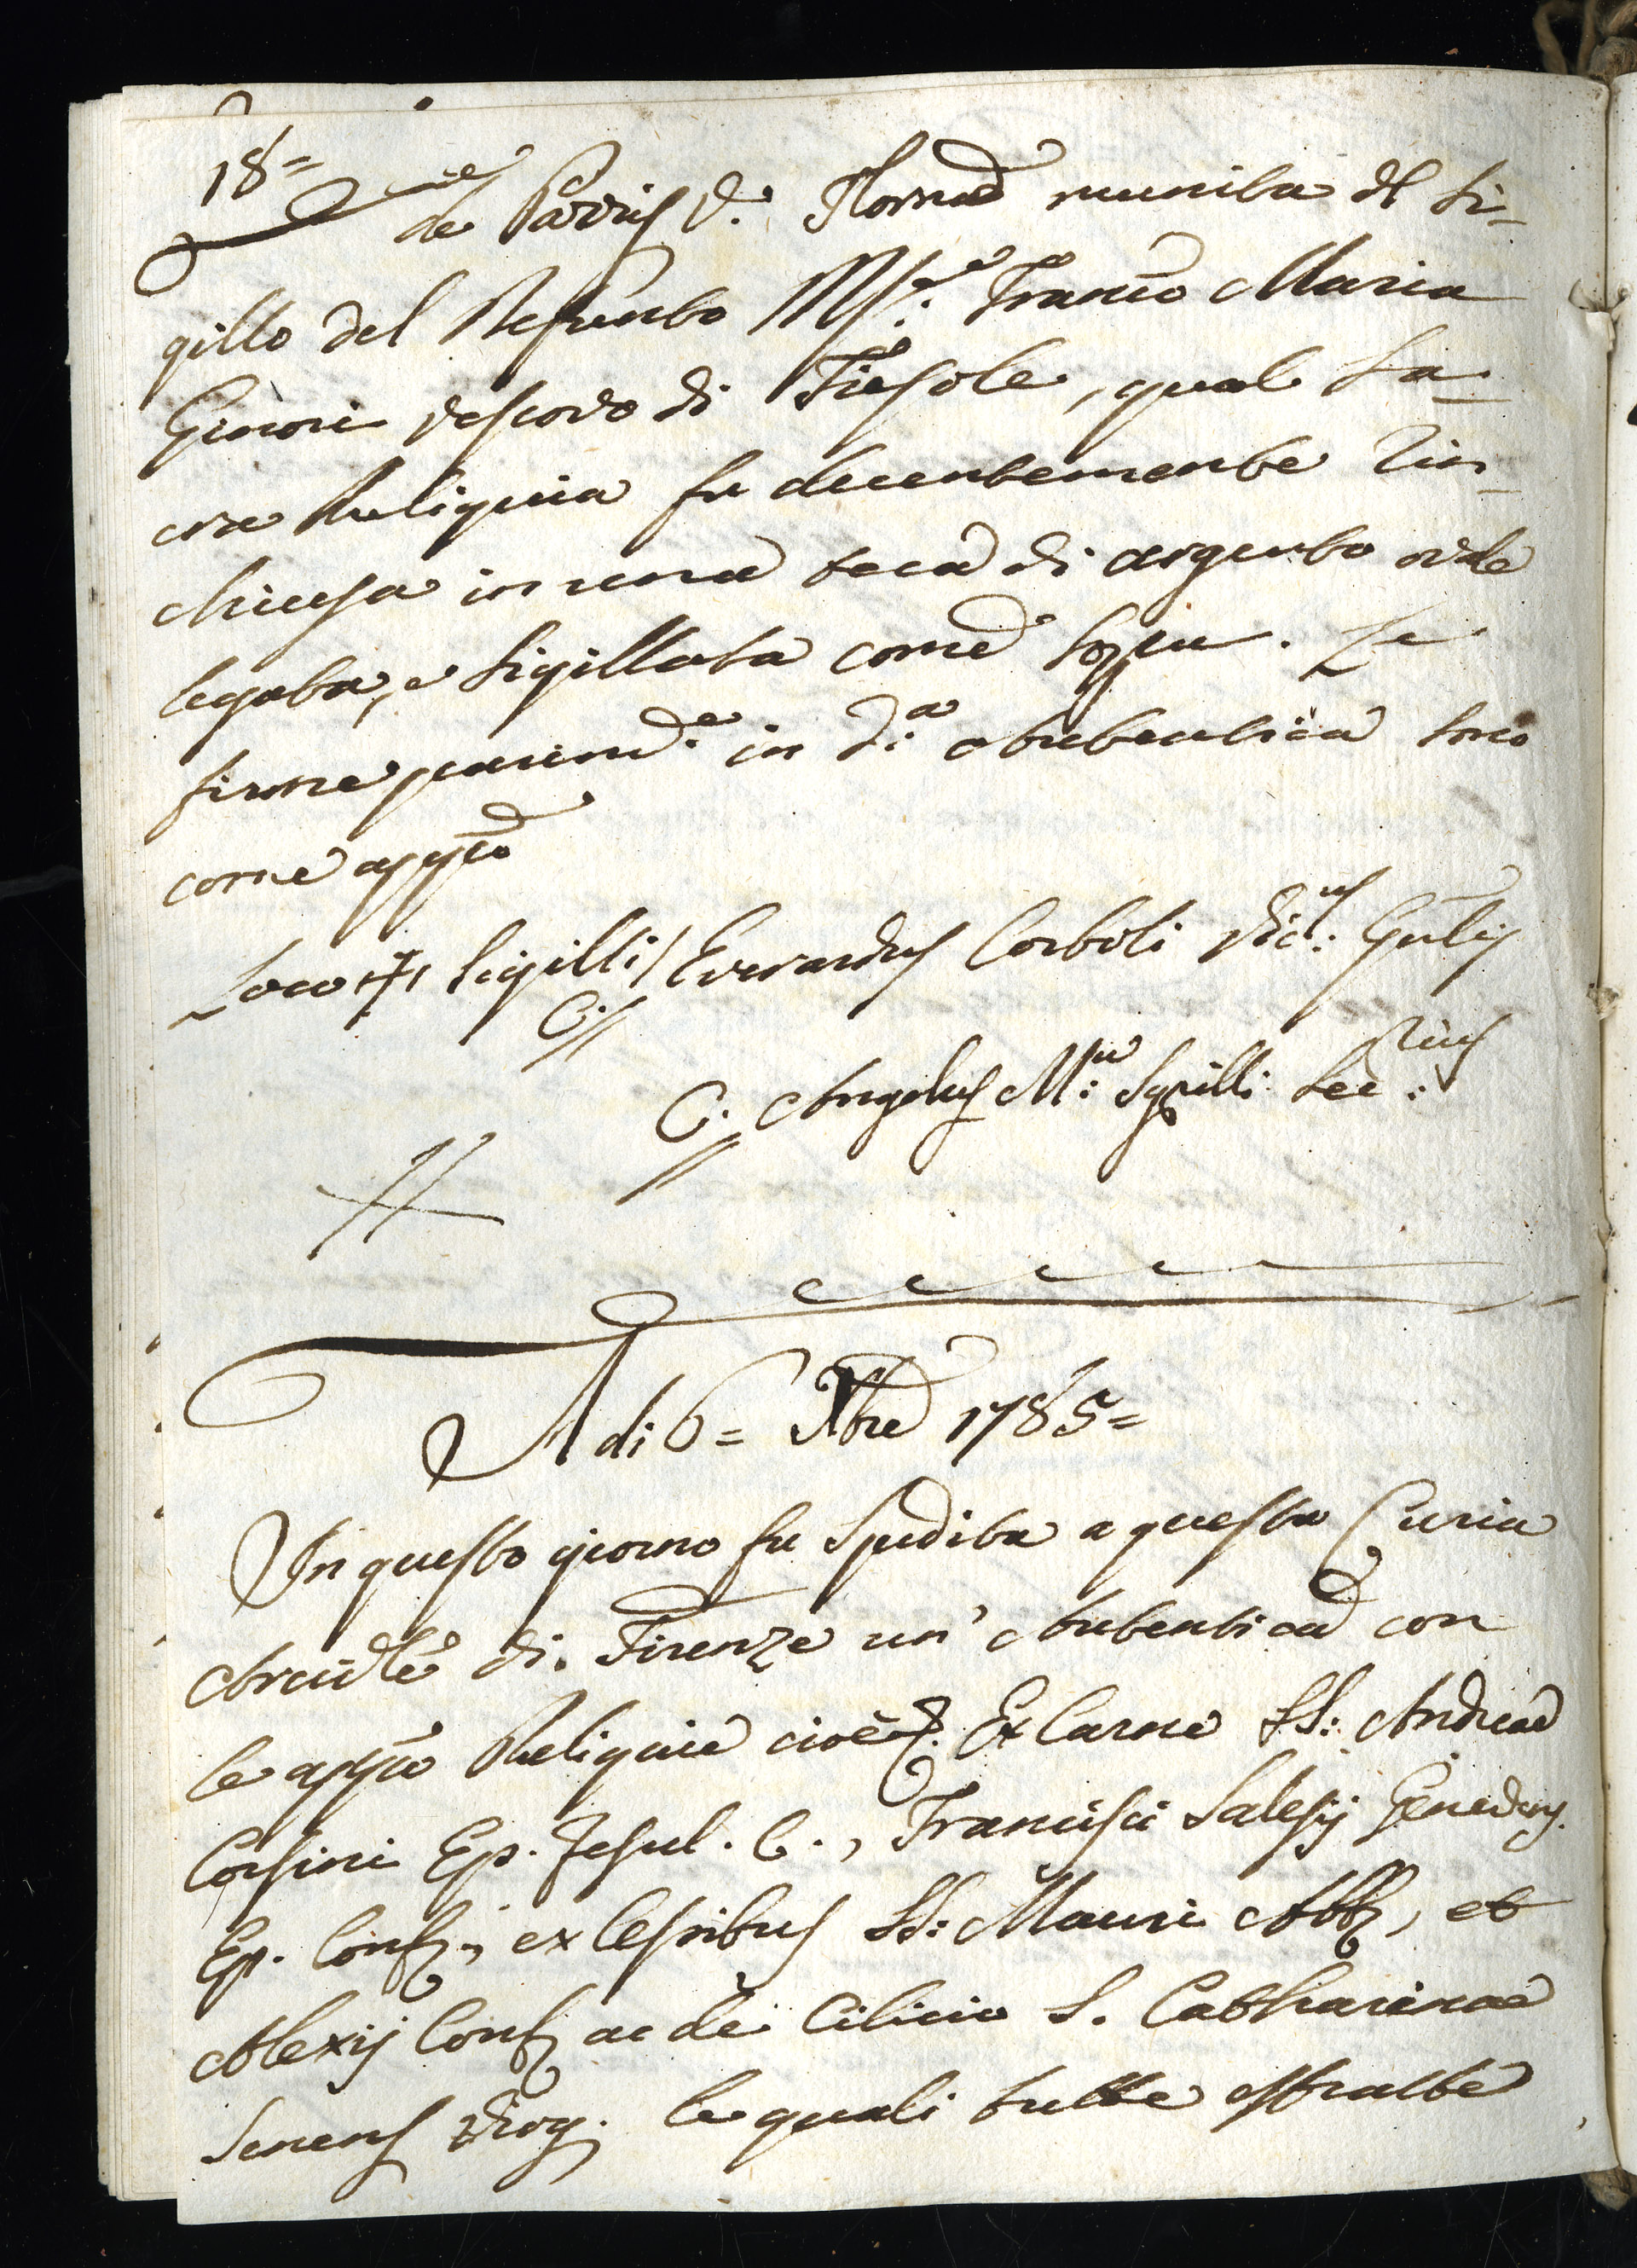 18=
de Pazzis V. Floren munita del Si-
gillo del Defunto Mr.e Franco Maria
Ginori Vescovo di Fiesole, qual Sa-
cra Reliquia fu decentemente rin-
chiusa in una teca di argento ovale
legata, e Sigillata come sopra. Le
firme parim.e in d.a Autentica sono
come app.o
Loco + Sigilli / Everardus Corboli Vic.us Gnlis
C.
C. Angelus M.a Sgrilli Sec.rius
A di 6= Xbre 1785=
In questo giorno fu Spedita a questa Curia
Arcivle di Firenze un' Autentica con
le app.o Reliquie cioè Ex Carne SS: Andreae
Corsini Ep. Fesul. C., Francisci Salesij Geneven.
Ep. Conf., ex Cesribus SS: Mauri Abb, et
Alexij Conf ac de Cilicio S. Catharinae
Senens Virg. le quali tutte estratte